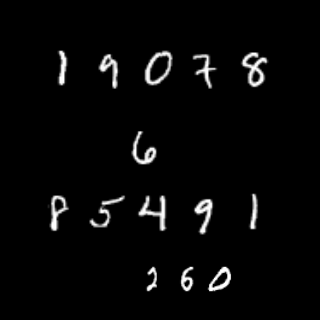 1 9 0 7 8
6
8 5 4 9 1
2 6 0